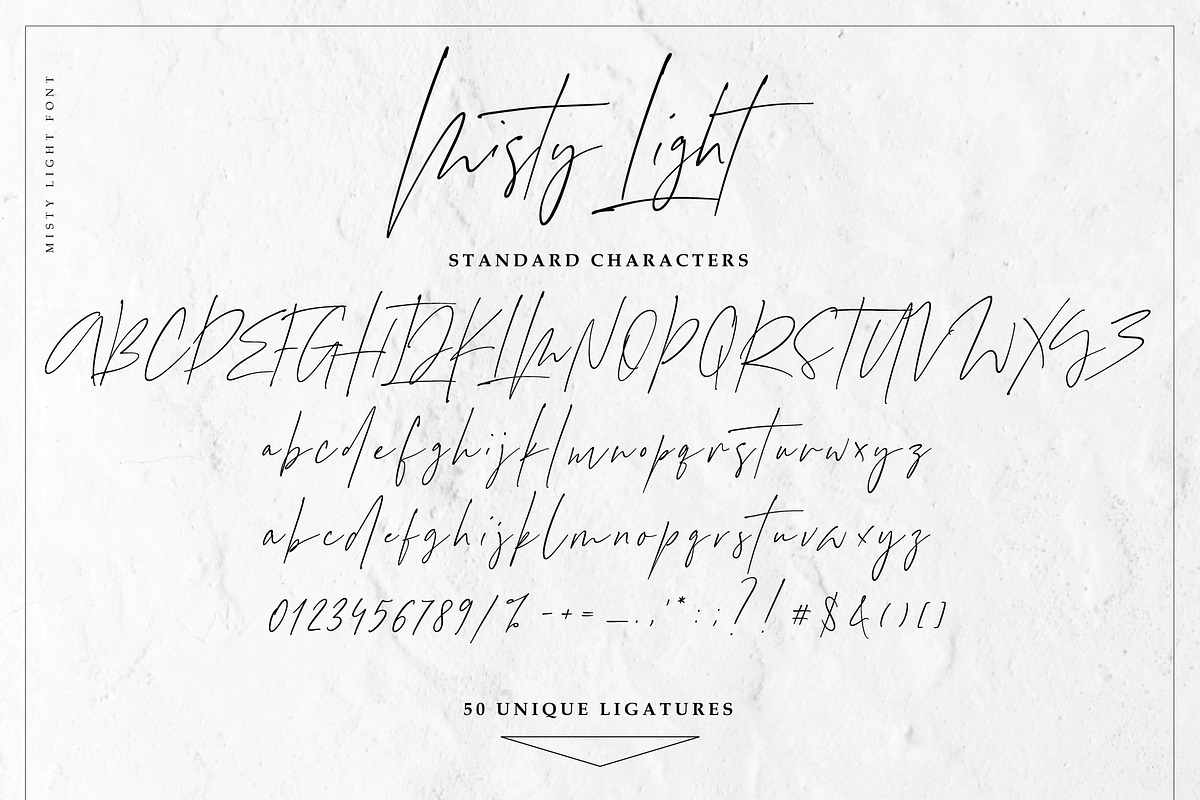 MISTY LIGHT FONT
Misty Light
STANDARD CHARACTERS
ABCDEFGHIJKLMNOPQRSTUVWXYZ
abcdefghijklmnopqrstuvwxyz
abcdefghijklmnopqrstuvwxyz
0123456789/% -+= _.,'*:;?! #$&()[]
50 UNIQUE LIGATURES